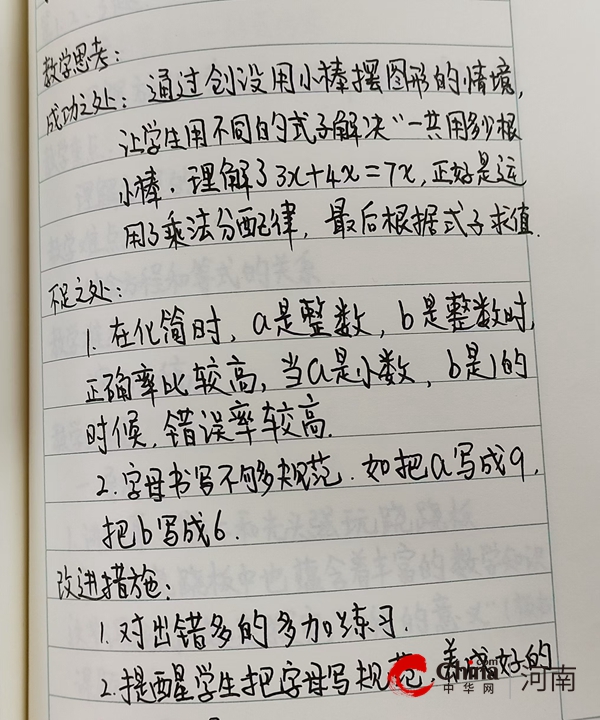 教学思考:
成功之处: 通过创设用小棒摆图形的情境,
让学生用不同的式子解决"一共用多少根
小棒. 理解了3x+4x=7x, 正好是运
用了乘法分配律, 最后根据式子求值.
不足之处:
1. 在化简时, a是整数, b是整数时,
正确率比较高, 当a是小数, b是1的
时候, 错误率较高.
2. 字母书写不够规范. 如把a写成9,
把b写成6.
改进措施:
1. 对出错多的多加练习.
2. 提醒学生把字母写规范, 养成好的
China.com
中华网
河南